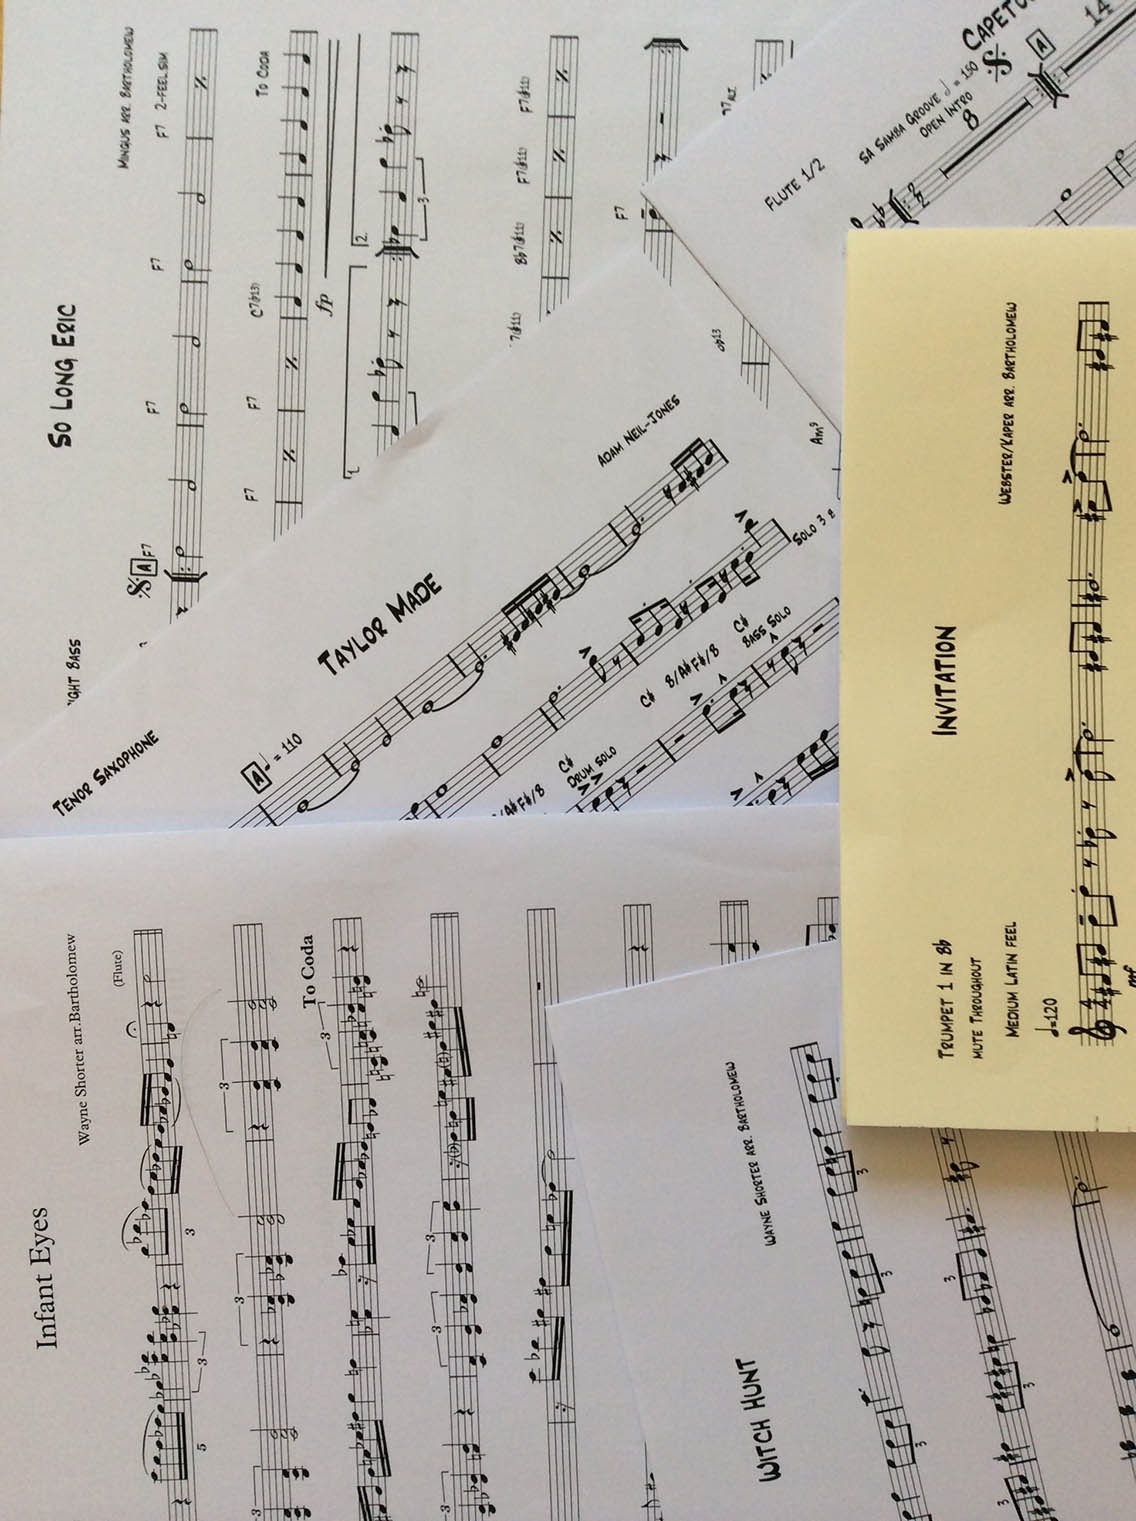 So Long Eric
Mingus arr. Bartholomew
A
F7
F7
F7
F7 2-feel sim
F7
F7
C7(♭13)
To Coda
fp
1.
2.
3
B♭7(♯11)
F7(♯11)
F7(♯11)
F7
Tenor Saxophone
Taylor Made
Adam Neil-Jones
A
♩ = 110
Solo 3
Drum Solo
Bass Solo
Flute 1/2
SA Samba Groove
= 150
Open Intro
8
A
14
Am9
Infant Eyes
Wayne Shorter arr.Bartholomew
(Flute)
5
3
3
3
3
3
3
To Coda
3
3
3
3
Witch Hunt
Wayne Shorter arr. Bartholomew
3
3
3
3
3
3
Trumpet 1 in B♭
Invitation
Webster/Kaper arr. Bartholomew
Mute Throughout
Medium Latin feel
♩=120
mf